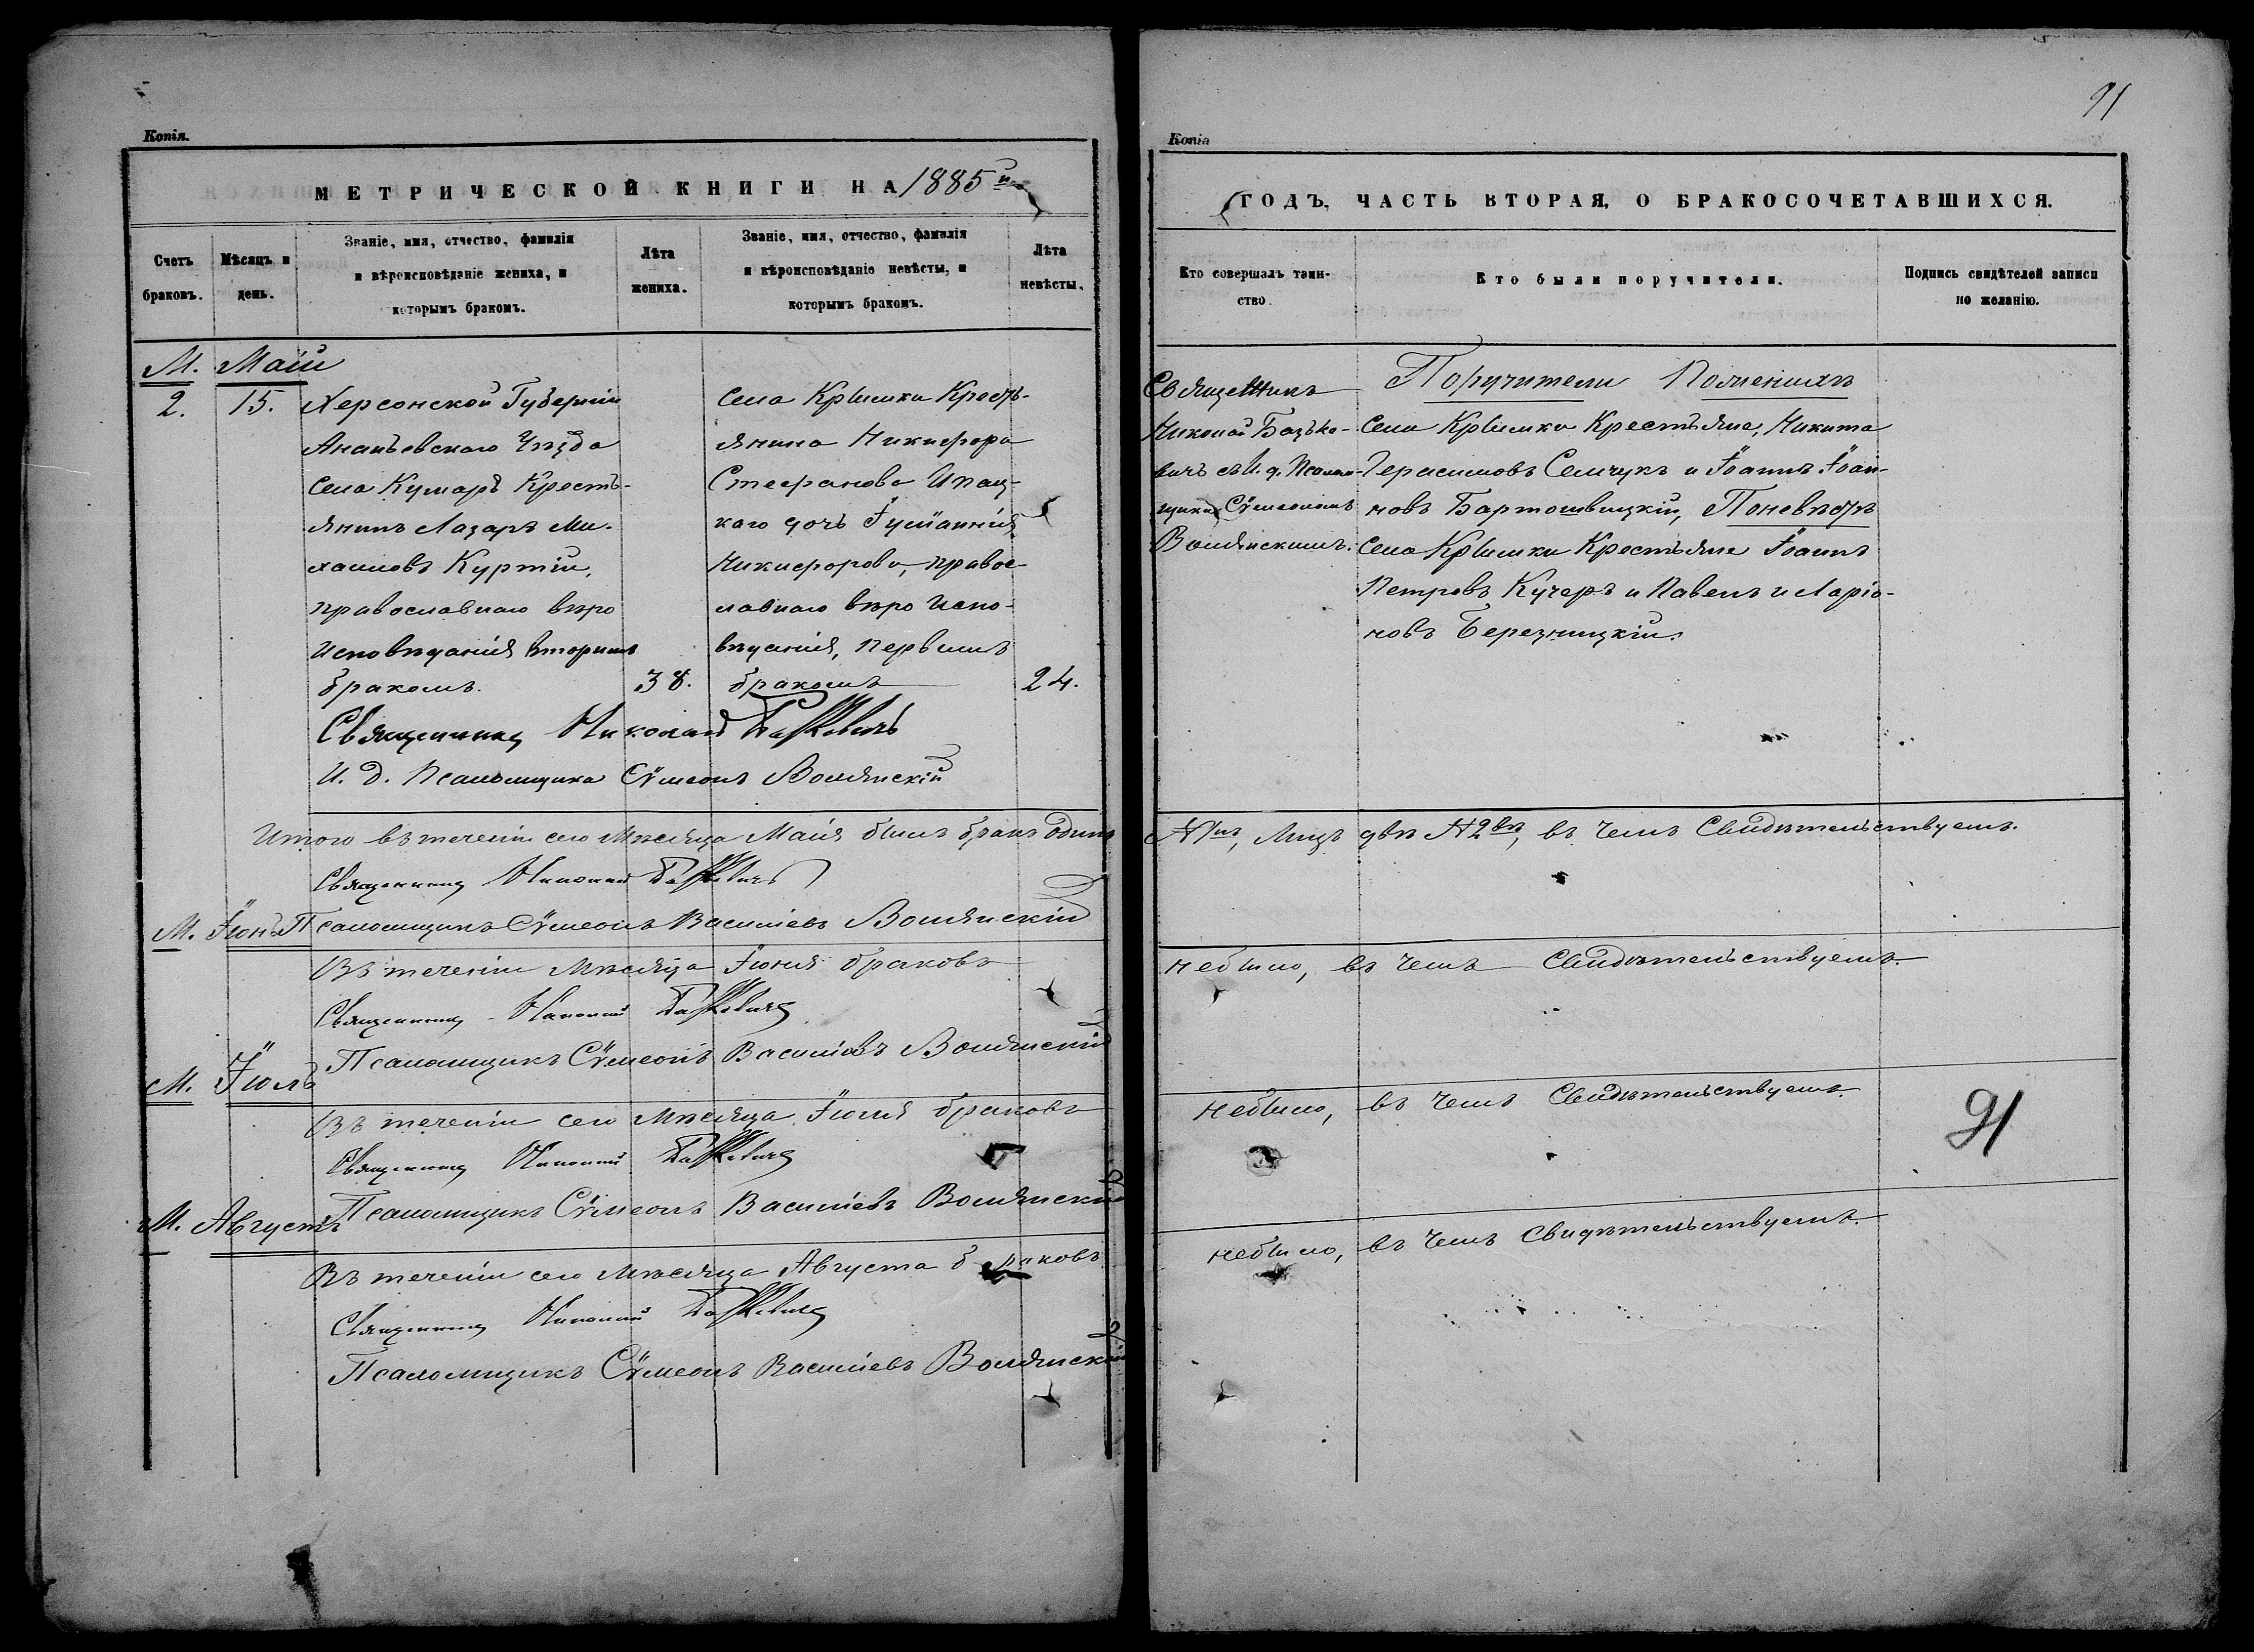 Копія.
МЕТРИЧЕСКОЙ КНИГИ НА 1885й
Счетъ браковъ.
Мѣсяцъ и день.
Званіе, имя, отчество, фамилія и вѣроисповѣданіе жениха, и которымъ бракомъ.
Лѣта жениха.
Званіе, имя, отчество, фамилія и вѣроисповѣданіе невѣсты, и которымъ бракомъ.
Лѣта невѣсты.
М. Маій
2. 15.
Херсонской Губерніи
Ананьевскаго Уѣзда
Села Кумаръ Кресть-
янинъ Лазаръ Ми-
хаиловъ Куртій,
православнаго вѣро
исповѣданія вторымъ
бракомъ.
38.
Села Крымки Кресть-
янина Никифора
Стефанова Ипац-
каго дочь Іуліаннія
Никифорова, правос-
лавнаго вѣро испо-
вѣданія, первымъ
бракомъ
24.
Священникъ Николай Базкевичъ
И. д. Псаломщика Сѵмеонъ Волянскій
Итого въ теченіи сего Мѣсяца Маія былъ бракъ одинъ
Священникъ Николай Базкевичъ
М. Іюнь
Псаломщикъ Сѵмеонъ Василіевъ Волянскій
Въ теченіи Мѣсяца Іюня браковъ
Священникъ Николай Базкевичъ
Псаломщикъ Сѵмеонъ Василіевъ Волянскій
М. Іюль
Въ теченіи сего Мѣсяца Іюля браковъ
Священникъ Николай Базкевичъ
Псаломщикъ Сѵмеонъ Василіевъ Волянскій
М. Августъ
Въ теченіи сего Мѣсяца Августа браковъ
Священникъ Николай Базкевичъ
Псаломщикъ Сѵмеонъ Василіевъ Волянскій
91
Копія
ГОДЪ, ЧАСТЬ ВТОРАЯ, О БРАКОСОЧЕТАВШИХСЯ.
Кто совершалъ таин-
ство.
Кто были поручители.
Подпись свидѣтелей записи
по желанію.
Священникъ
Николай Базьке-
вичъ съ И. д. Псалом-
щика Сѵмеономъ
Волянскимъ.
Поручители Поженихѣ
Села Крымки Крестьяне, Никита
Герасимовъ Семчукъ и Іоаннъ Іоан-
новъ Бартошвицкій, Поневѣстѣ
Села Крымки Крестьяне Іоаннъ
Петровъ Кучеръ и Павелъ Иларіо-
новъ Березницкій.
№1нъ, Лицъ двѣ №2вѣ, въ чемъ Свидѣтельствуемъ.
небыло, въ чемъ Свидѣтельствуемъ.
небыло, въ чемъ Свидѣтельствуемъ.
91
небыло, въ чемъ Свидѣтельствуемъ.